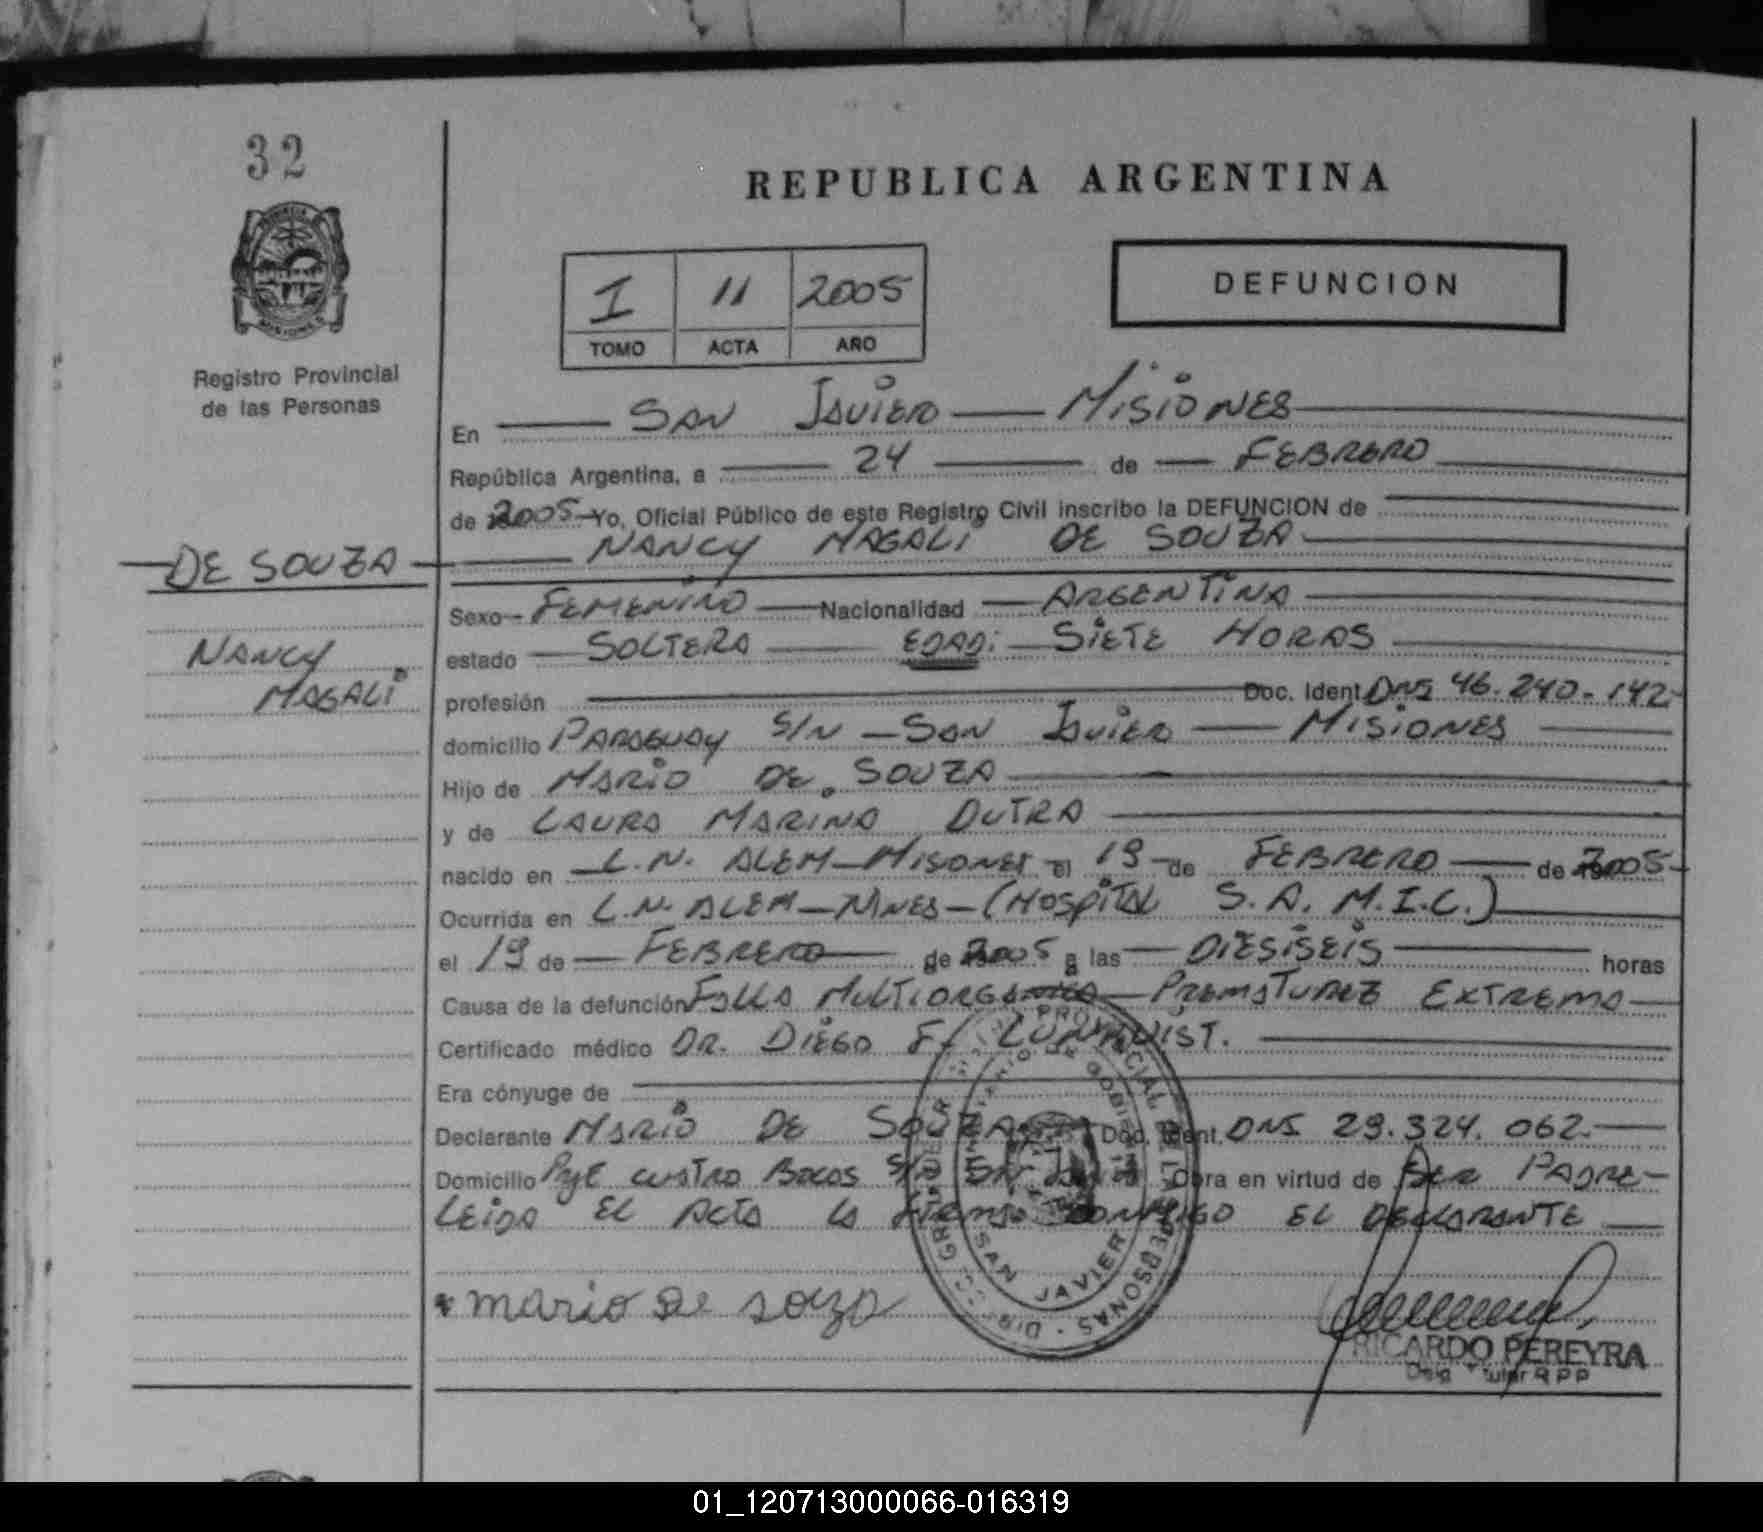 32
REPUBLICA ARGENTINA
I 11 2005
TOMO ACTA AÑO
DEFUNCION
Registro Provincial
de las Personas
En SAN JAVIER MISIONES
República Argentina, a 24 de FEBRERO
de 2005 Yo, Oficial Público de este Registro Civil inscribo la DEFUNCION de
DE SOUZA NANCY MAGALI DE SOUZA
Sexo FEMENINO Nacionalidad ARGENTINA
NANCY
MAGALI
estado SOLTERA EDAD: SIETE HORAS
profesión Doc. Ident. DNI 46.240.142
domicilio PARAGUAY S/N - SAN JAVIER MISIONES
Hijo de MARIO DE SOUZA
y de LAURA MARINA DUTRA
nacido en L.N. ALEM - MISONES el 19 de FEBRERO de 2005
Ocurrida en L.N. ALEM - MNES - (HOSPITAL S.A.M.I.C.)
el 19 de FEBRERO de 2005 a las DIESISEIS horas
Causa de la defunción FALLA MULTIORGANICA - PREMATUREZ EXTREMA
Certificado médico DR. DIEGO F. LUNDQUIST.
Era cónyuge de
Declarante MARIO DE SOUZA Doc. Ident. DNI 29.324.062.
Domicilio Pje CUATRO BOCAS S/N SAN JAVIER Obra en virtud de SER PADRE-
LEIDA EL ACTA LA FIRMA CONMIGO EL DECLARANTE
mario de souza
SAN JAVIER
RICARDO PEREYRA
01_120713000066-016319